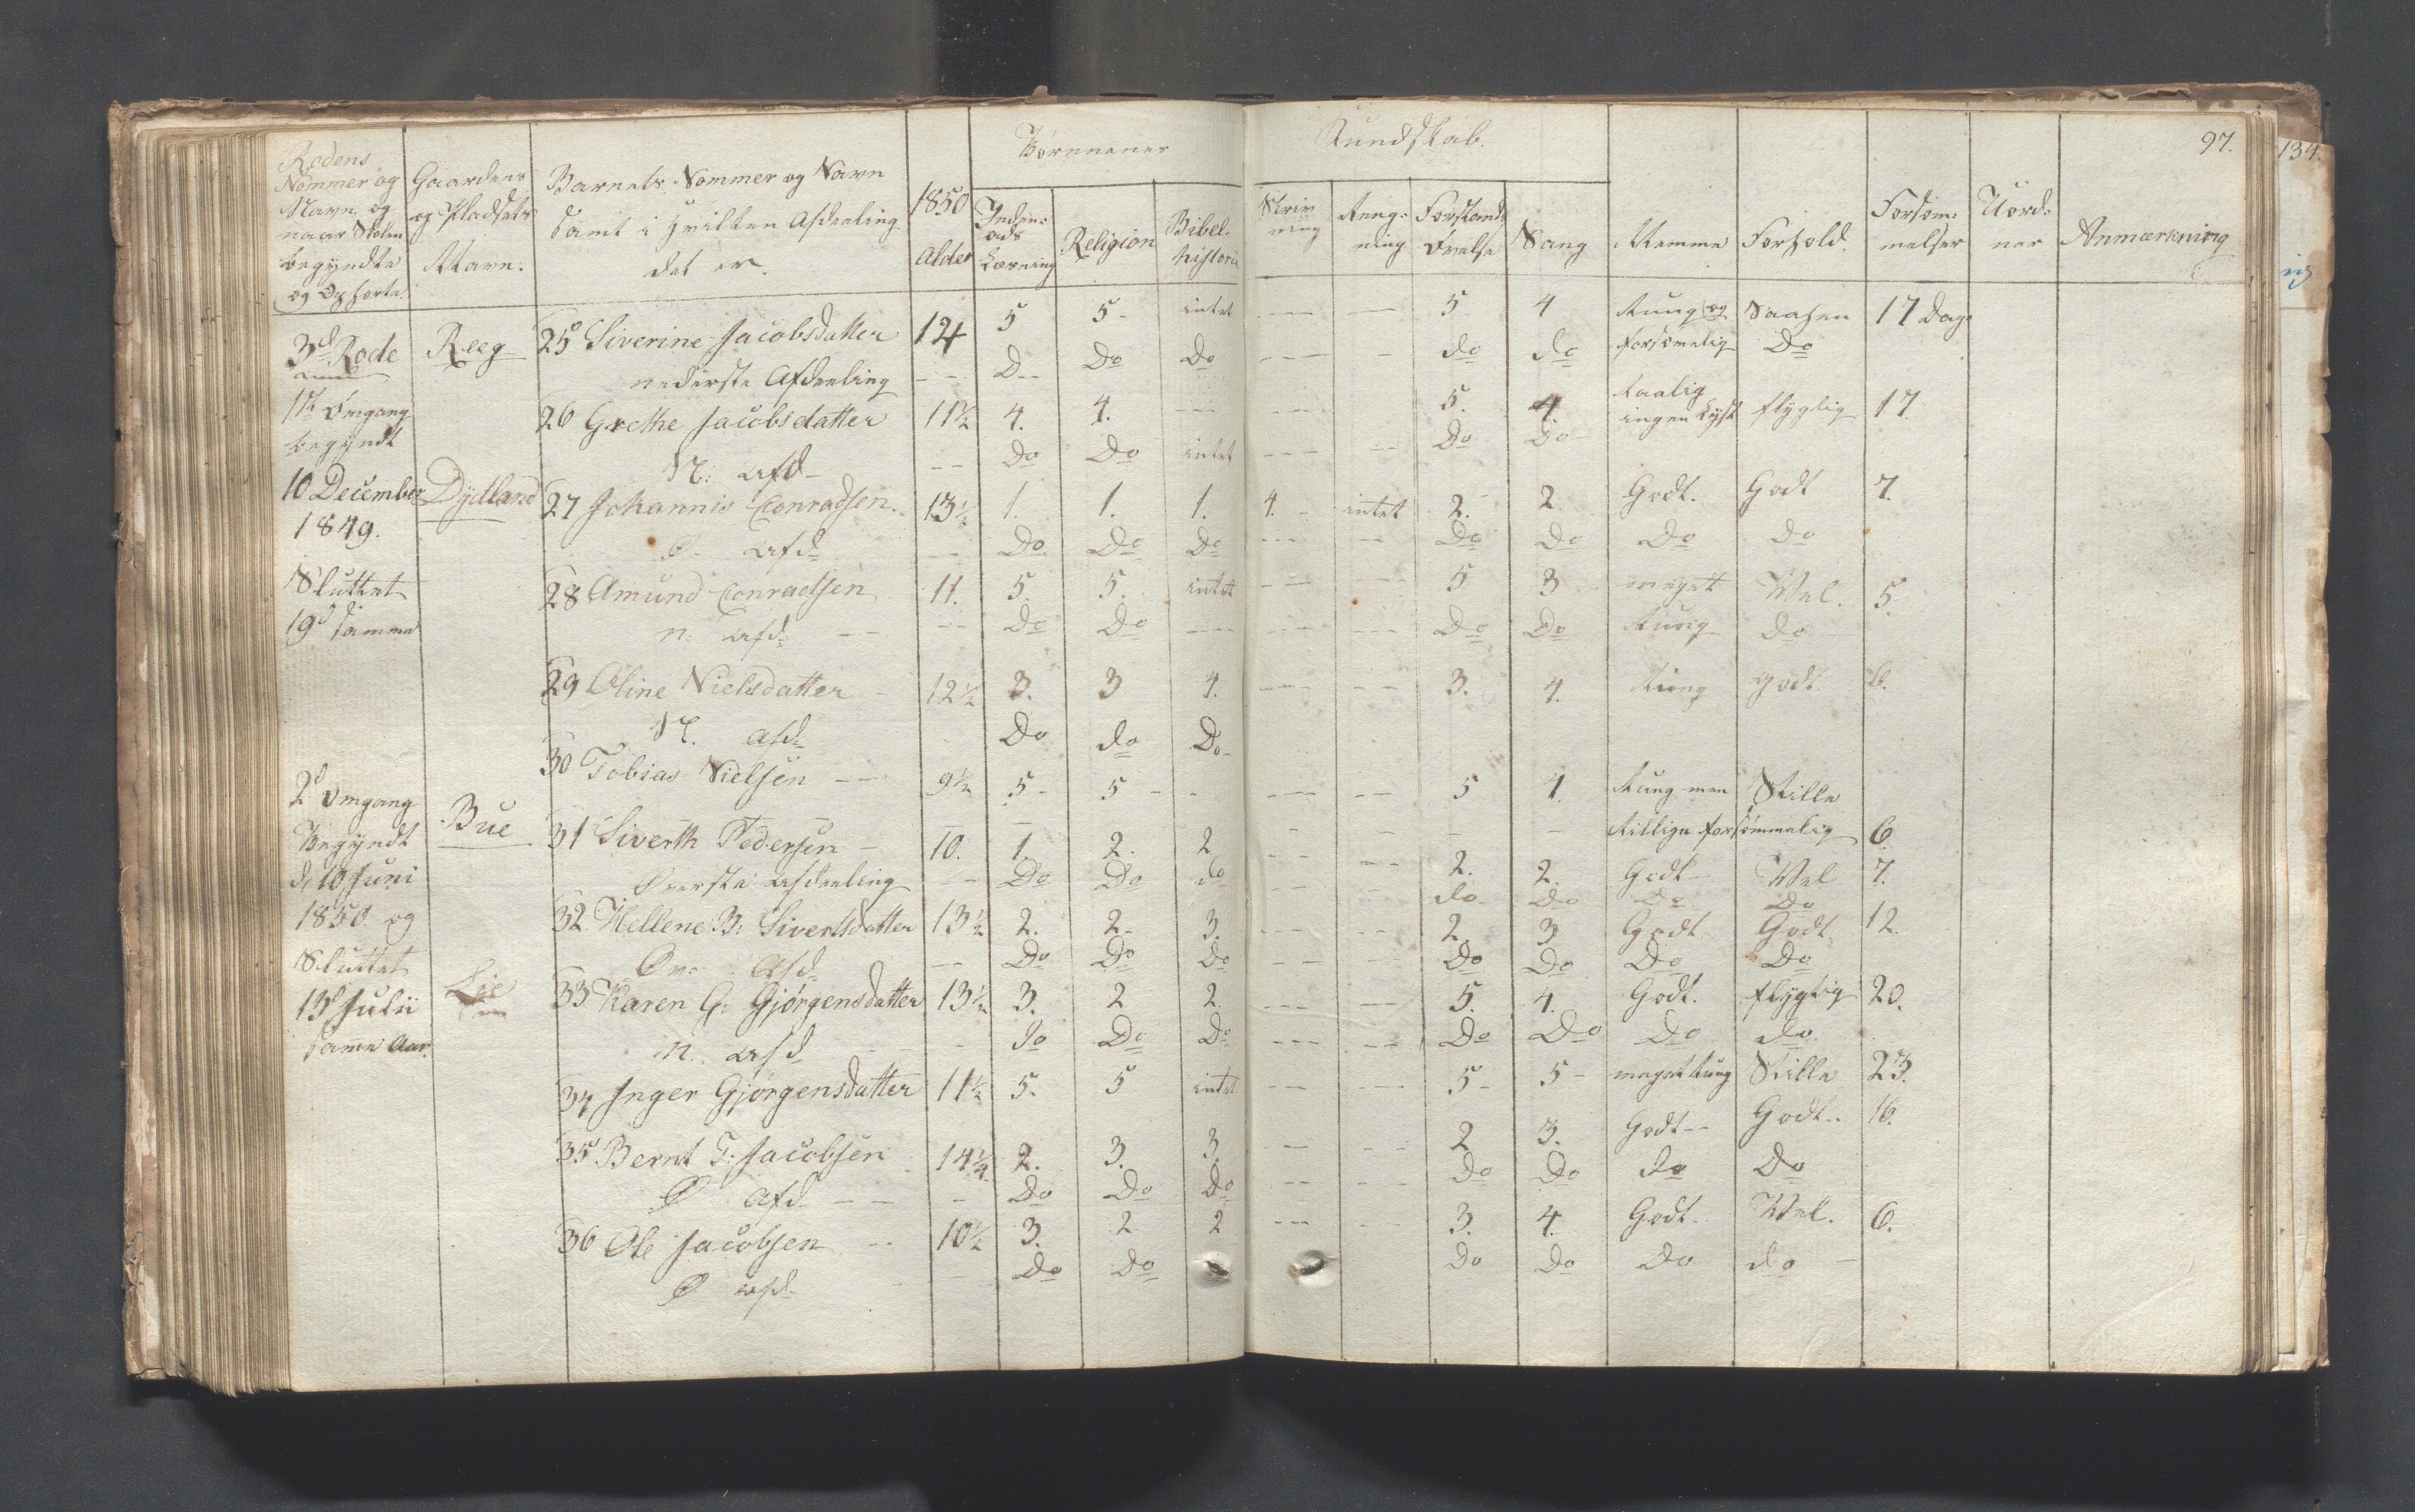 97.
134.
Børnenes Kundskab.
Rodens Nommer og Navn, og naar Skolen begyndte og Ophørte.
Gaardens og Pladsets Navn.
Barnets Nommer og Navn samt i Hvilken Afdeeling det er.
1850 Alder
Inden-ads Læsning
Religion
Bibel-historie
Skriv ning
Reng-ning
Forstands Øvelse
Sang
Nemme
Forhold.
Forsøm-melser
Uord-ner
Anmærkning
3d Rode
1st Omgang
begyndt
10 December
1849.
Sluttet
19d samme
2d Omgang
Begyndt
d. 10 Juni
1850 og
Sluttet
13d Julii
samme Aar.
Reeg 25 Siverine Jacobsdatter 12 4 5 5- intet --- -- 5 4 tung og 17 Dage
nederste Afdeeling -- Do Do Do --- - do do forsømelig Do
26 Grethe Jacobsdatter 11½ 4. 4. --- -- 5. 4. ingen Lyst flygtig 17
N: afd -- Do Do intet --- -- Do Do
Dydland 27 Johannis Conradsen. 13½ 1. 1. 1. 4. - intet 2. 2. Godt. Godt 7.
Ø- afd -- Do Do Do --- -- Do Do Do do
28 Amund Conradsen 11. 5. 5. intet --- -- 5 3 meget Vel. 5.
n: afd: -- Do Do --- --- --- Do Do tung do
29 Oline Nielsdatter - 12½ 3. 3 4. --- -- 3. 4. tung godt. 6.
N. afd: Do do Do-
30 Tobias Nielsen -- 9½ 5- 5- - --- -- 5 4. tung men Stille
forsømmelig 6.
Bue 31 Siverth Pedersen - 10. 1. 2. 2 -- --- 2. 2. Godt- Vel 7.
Øverste Afdeeling -- Do Do do -- -- do- Do Do Do
32. Hellene B: Sivertsdatter 13½ 2. 2- 3. -- -- 2. 3 Godt Godt 12.
Øv- Afd -- Do Do Do -- -- Do Do Do Do
Lie 33 Karen G: Gjørgensdatter 13½ 3. 2 2. --- -- 5. 4. Godt. flygtig 20.
n. afd - do Do Do --- -- Do Do do do
34 Inger Gjørgensdatter 11½ 5. 5 intet -- --- 5- 5- meget tung Stille 23.
35 Bernt T: Jacobsen 14¼ 2. 3. 3. -- -- 2 3. Godt-- Godt-- 16.
Ø afd -- - Do Do Do -- --- do Do do Do
36 Ole Jacobsen -- 10½ 3. 2 2 --- -- 3. 4. Godt- Vel. 6.
Ø afd- Do Do do Do Do do